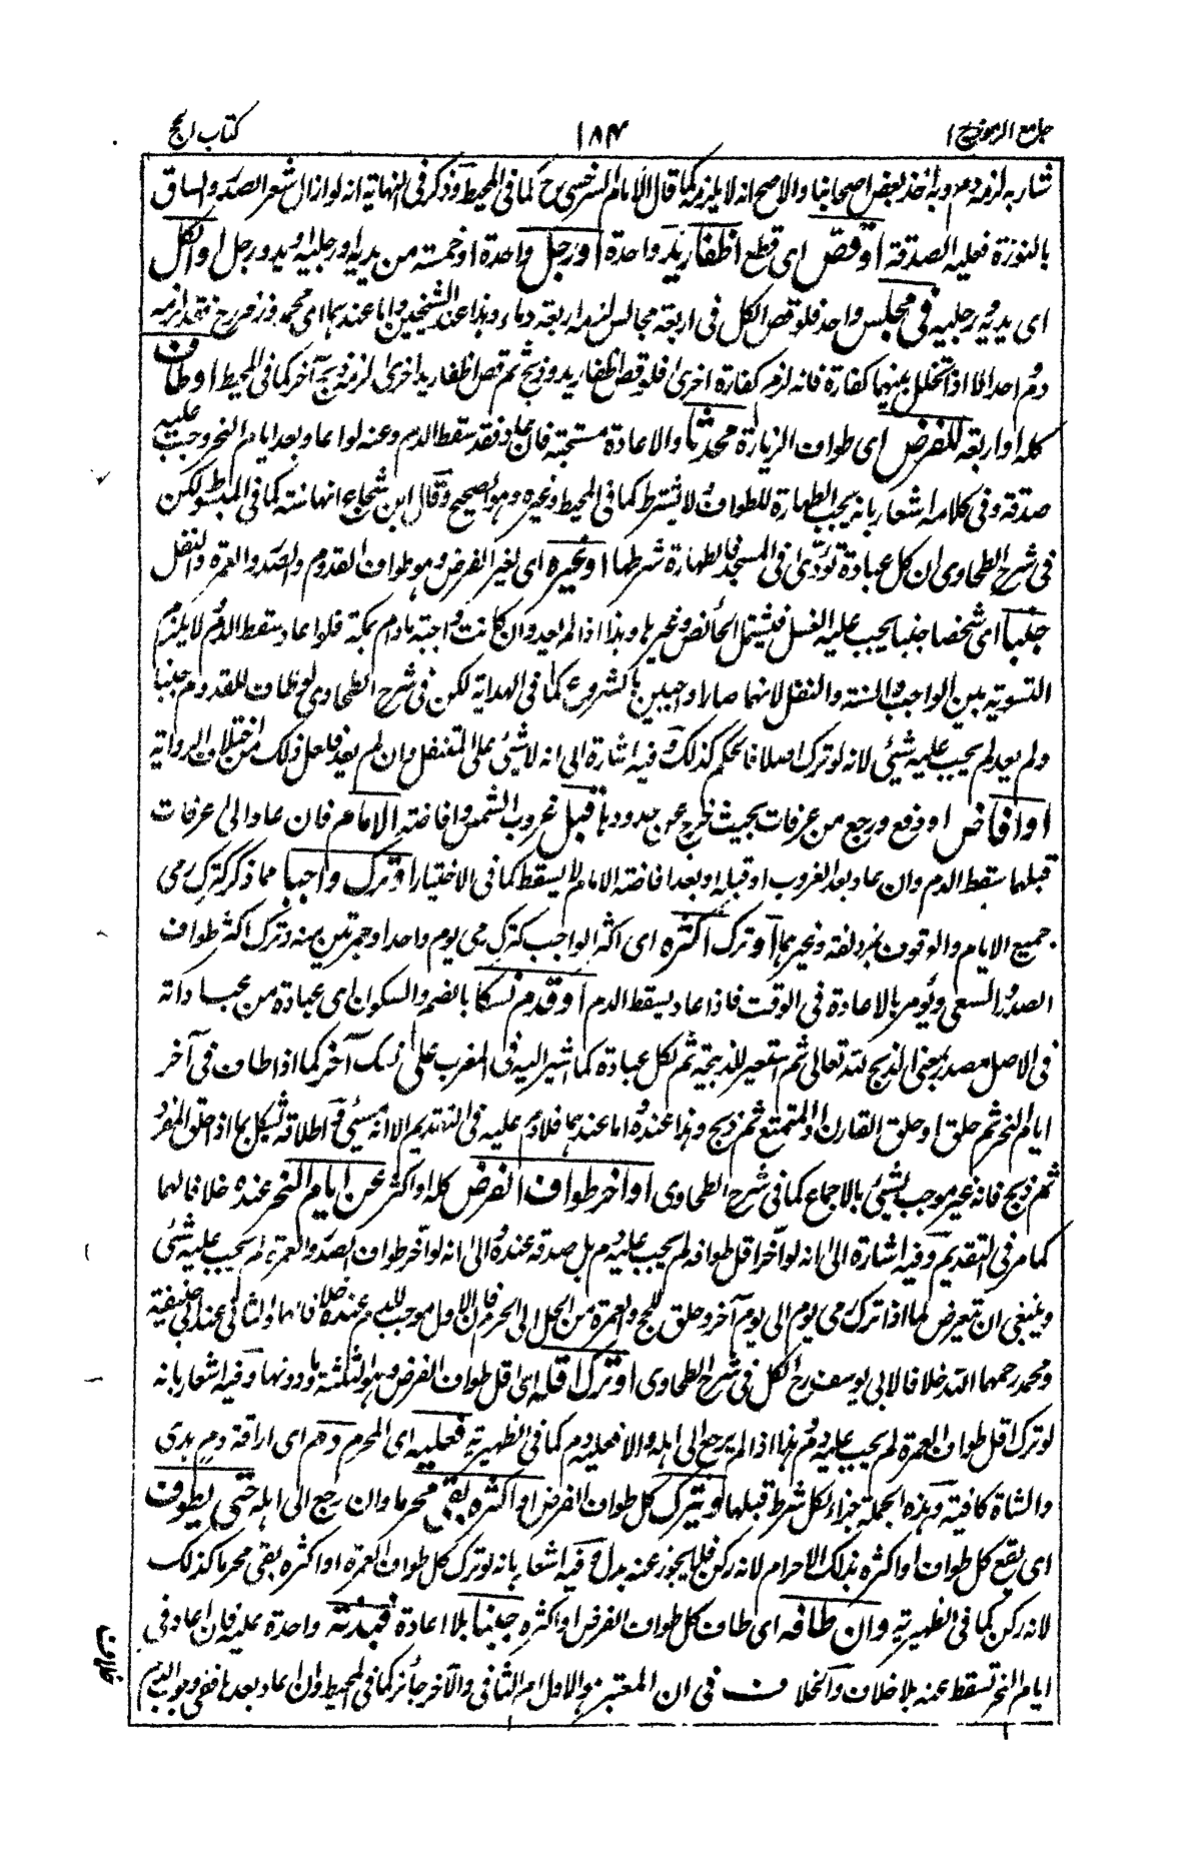 جامع الرموز ج ١
١٨٤
كتاب الحج
شاربه لزمه دم وبه اخذ بعض اصحابنا والاصح انه لا يلزمه كما قال الامام السرخسى رح كما فى المحيط وذكر فى النهاية انه لو ازال شعر الصدر والساق
بالنورة فعليه الصدقة او قص اى قطع اظفار يد واحدة او رجل واحدة او خمسة من يديه او رجليه او يد ورجل او الكل
اى يديه ورجليه فى مجلس واحد فلو قص الكل فى اربعة مجالس لزمه اربعة دماء وهذا عند الشيخين واما عندهما اى محمد وزفر رح فقد لزمه
دم واحد الا اذا تخلل بينهما كفارة فانه لزم كفارة اخرى فلو قص اظفار يد وذبح ثم قص اظفار يد اخرى لزمه ذبح آخر كما فى المحيط او طاف
كله او اربعة للفرض اى طواف الزيارة محدثا والاعادة مستحبة فان عاد فقد سقط الدم وعنه لو اعاد بعد ايام النحر وجب عليه
صدقة وفى كلامه اشعار بانه يجب الطهارة للطواف لا يشترط كما فى المحيط وغيره وهو الصحيح وقال ابن شجاع انها سنة كما فى المبسوط لكن
فى شرح الطحاوى ان كل عبادة تؤدى فى المسجد فالطهارة شرطها او غيره اى لغير الفرض وهو طواف القدوم والصدر والعمرة والنفل
جنبا اى شخصا جنبا يجب عليه الغسل فيشتمل الحائض وغيرها وهذا اذا لم يعد وان كانت واجبة ما دام بمكة فلو اعاد سقط الدم لا يلزم
التسوية بين الواجب والسنة والنفل لانهما صارا واجبين بالشروع كما فى الهداية لكن فى شرح الطحاوى لو طاف للقدوم جنبا
ولم يعد لم يجب عليه شئى لانه لو ترك اصلا فالحكم كذلك وفيه اشارة الى انه لا شئى على المتنفل وان لم يعد فلعل ذلك من اختلاف الرواية
او افاض او دفع ورجع من عرفات بحيث خرج عن حدودها قبل غروب الشمس وافاضة الامام فان عاد الى عرفات
قبلها سقط الدم وان عاد بعد الغروب او قبله او بعد افاضة الامام لا يسقط كما فى الاختيار او ترك واجبا مما ذكر كترك رمى
جميع الايام والوقوف بمزدلفة وغيرهما او ترك اكثره اى اكثر الواجب كترك رمى يوم واحد او جمرتين منه وترك اكثر طواف
الصدر والسعى ويؤمر بالاعادة فى الوقت فاذا عاد يسقط الدم او قدم نسكا بالضم والسكون اى عبادة من عباداته
فى الاصل مصدر بمعنى الذبح لله تعالى ثم استعير للذبيحة ثم لكل عبادة كما اشير اليه فى المغرب على نسك آخر كما اذا طاف فى آخر
ايام النحر ثم حلق او حلق القارن او المتمتع ثم ذبح وهذا عنده اما عندهما فلا دم عليه فى التقديم الا انه مسئى فى اطلاقه شكل بما اذا حلق المفرد
ثم ذبح فانه غير موجب لشئى بالاجماع كما فى شرح الطحاوى او اخر طواف الفرض كله او اكثر عن ايام النحر عنده خلافا لهما
كما مر فى التقديم وفيه اشارة الى انه لو اخر اقل طوافه لم يجب عليه دم بل صدقة عنده والى انه لو اخر طواف الصدر والعمرة لم يجب عليه شئى
وينبغى ان تعرض لما اذا ترك رمى يوم الى يوم آخر وحلق للحج والعمرة من الحل الى الحرم فان الاول موجب للدم عنده خلافا لهما والثانى عند ابى حنيفة
ومحمد رحمهما الله خلافا لابى يوسف رح الكل فى شرح الطحاوى او ترك اقله اى اقل طواف الفرض وهو الثلثة وما دونها وفيه اشعار بانه
لو ترك اقل طواف العمرة لم يجب عليه دم وهذا اذا لم يرجع الى اهله والا فعليه دم كما فى الظهيرية فعليه اى المحرم دم اى اراقة دم هدى
والشاة كافية وهذه الجملة جزاء لكل شرط قبلها وبترك كل طواف الفرض او اكثره بقى محرما وان رجع الى اهله حتى يطوف
اى يقع كل طواف او اكثره بذلك الاحرام لانه ركن فلا يجوز عنه بدل وفيه اشعار بانه لو ترك كل طواف العمرة او اكثره بقى محرما كذلك
لانه ركن كما فى الظهيرية وان طافه اى طاف كل طواف الفرض او اكثره جنبا بلا اعادة فبدنة واحدة عليه فان اعاد فى
ايام النحر تسقط عنه بلا خلاف والخلاف فى ان المعتبر هو الاول ام الثانى والآخر جائز كما فى المحيط وان اعاد بعدها ففى وجوب الدم
خلاف